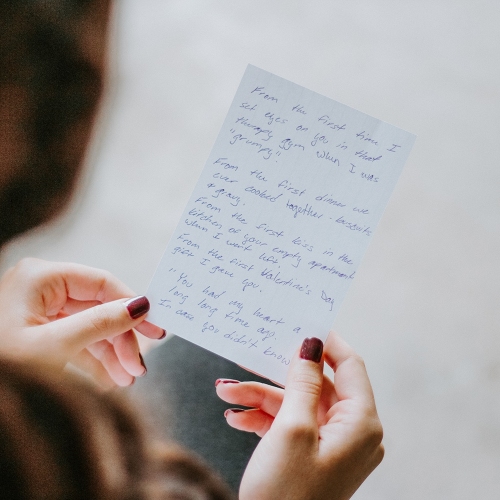 From the first time I
set eyes on you in that
therapy gym when I was
"grumpy".
From the first dinner we
ever cooked together - biscuits
& gravy.
From the first kiss in the
kitchen of your empty apartment
when I
From the first Valentine's Day
gift I gave you.
"You had my heart a
long long time ago
In case you didn't know